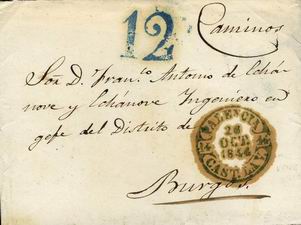 12
Caminos
Señ D. Fran.co Antonio de Echá-
nove y Echánove Ingeniero en
gefe del Distrito de
Burgos.
PALENCIA
26
OCT.
1844
CAST. LA V.